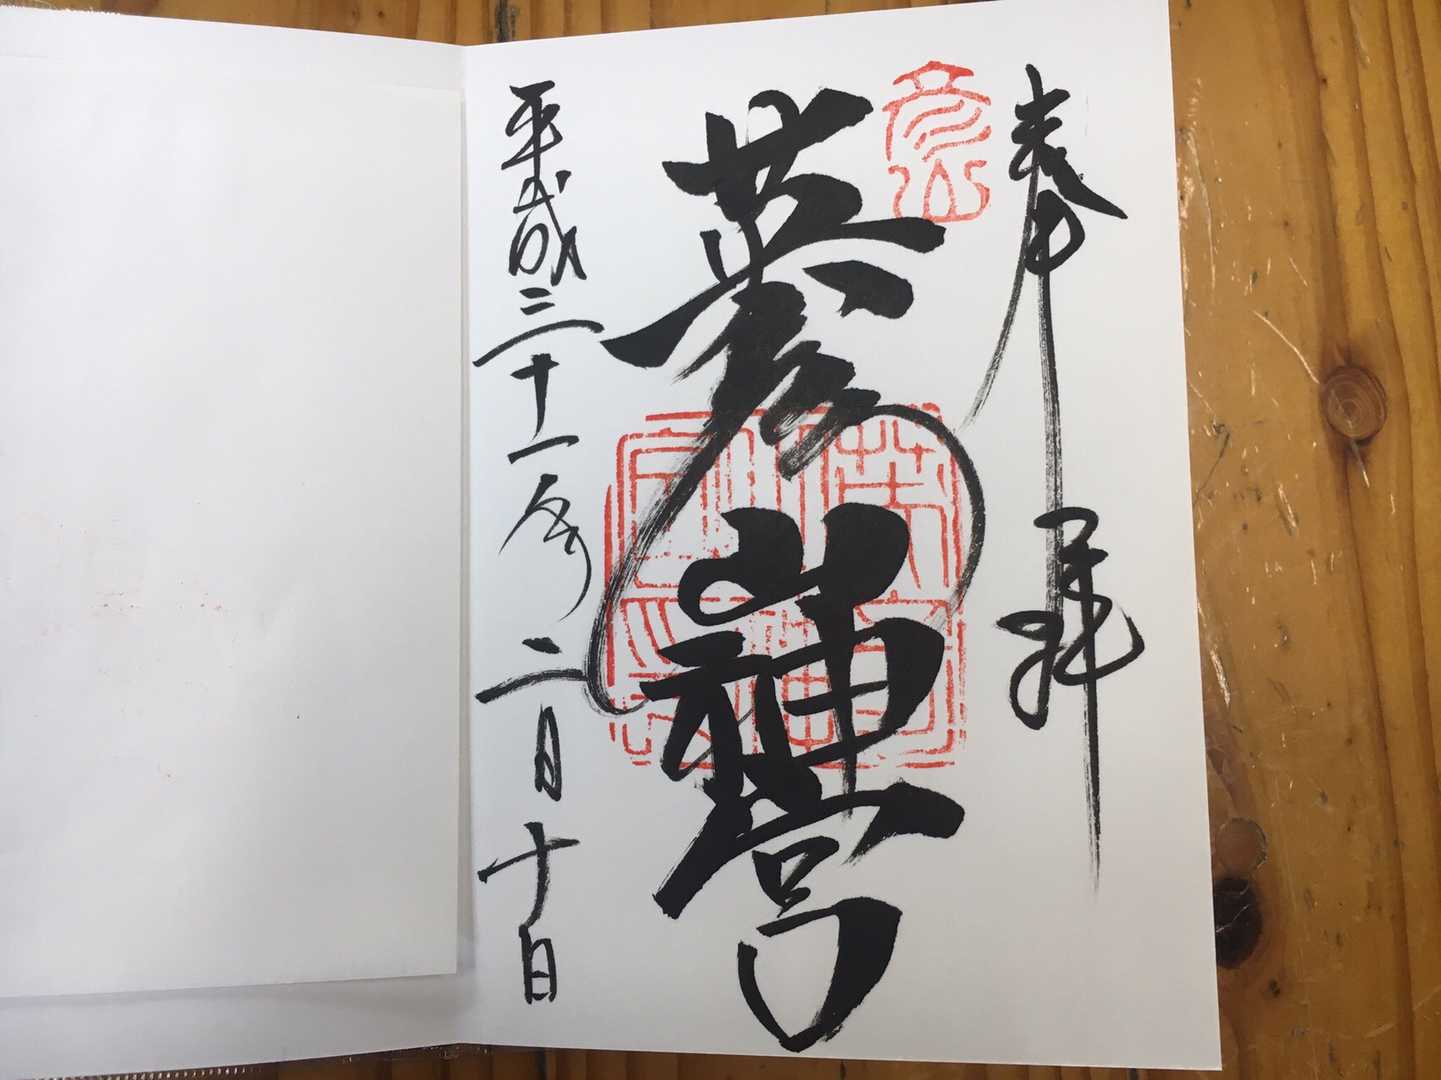 奉拝
彦山
英彦山神宮
平成三十一年二月十日